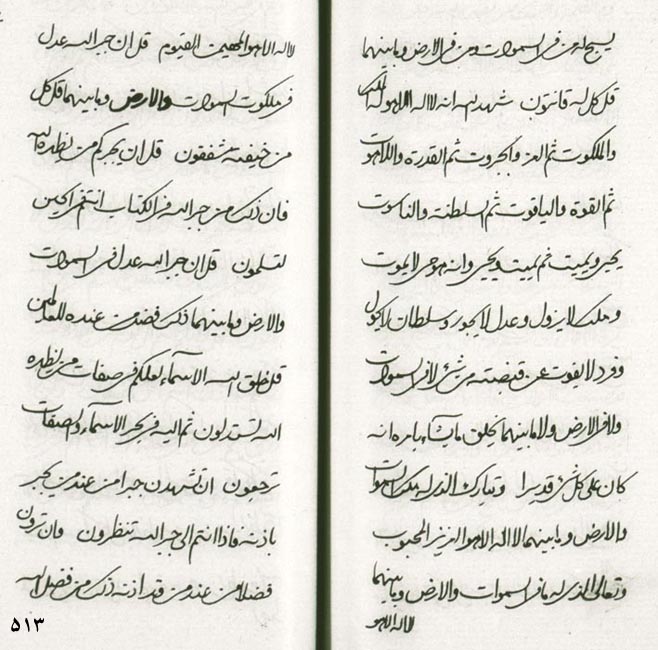 يسبح له من فى السموات ومن فى الارض وما بينهما
قل كل له قانتون شهد الله انه لا اله الا هو له الملك
والملكوت ثم العز والجبروت ثم القدرة واللاهوت
ثم القوة والياقوت ثم السلطنة والناسوت
يحيى ويميت ثم يميت ويحيى وانه هو حى لا يموت
وملك لا يزول وعدل لا يجور وسلطان لا يحول
وفرد لا يفوت عن قبضته من شئ لا فى السموات
ولا فى الارض ولا ما بينهما يخلق ما يشاء بامره انه
كان على كل شئ قديرا وتبارك الذى له ملك السموات
والارض وما بينهما لا اله الا هو العزيز المحبوب
وتعالى الذى له ما فى السموات والارض وما بينهما
لا اله الا هو
لا اله الا هو المهيمن القيوم قل ان جبر الله عدل
فى ملكوت السموات والارض وما بينهما قل كل
من خيفته مشفقون قل ان يجبركم من يظهره الله
فان ذلك من جبر الله فى الكتاب انتم فى الحين
لتسلمون قل ان جبر الله عدل فى السموات
والارض وما بينهما ذلك فضل من عنده للعالمين
قل خلق الله الاسماء لعلكم فى صفات من يظهره
الله تستدلون ثم اليه فى بحر الاسماء والصفات
ترجعون ان تشهدن جبرا من عند من يجبر
باذنه فاذا انتم الى جبر الله تنظرون وان ترون
فضلا من عند من قد اذنه ذلك من فضل الله
٥١٣